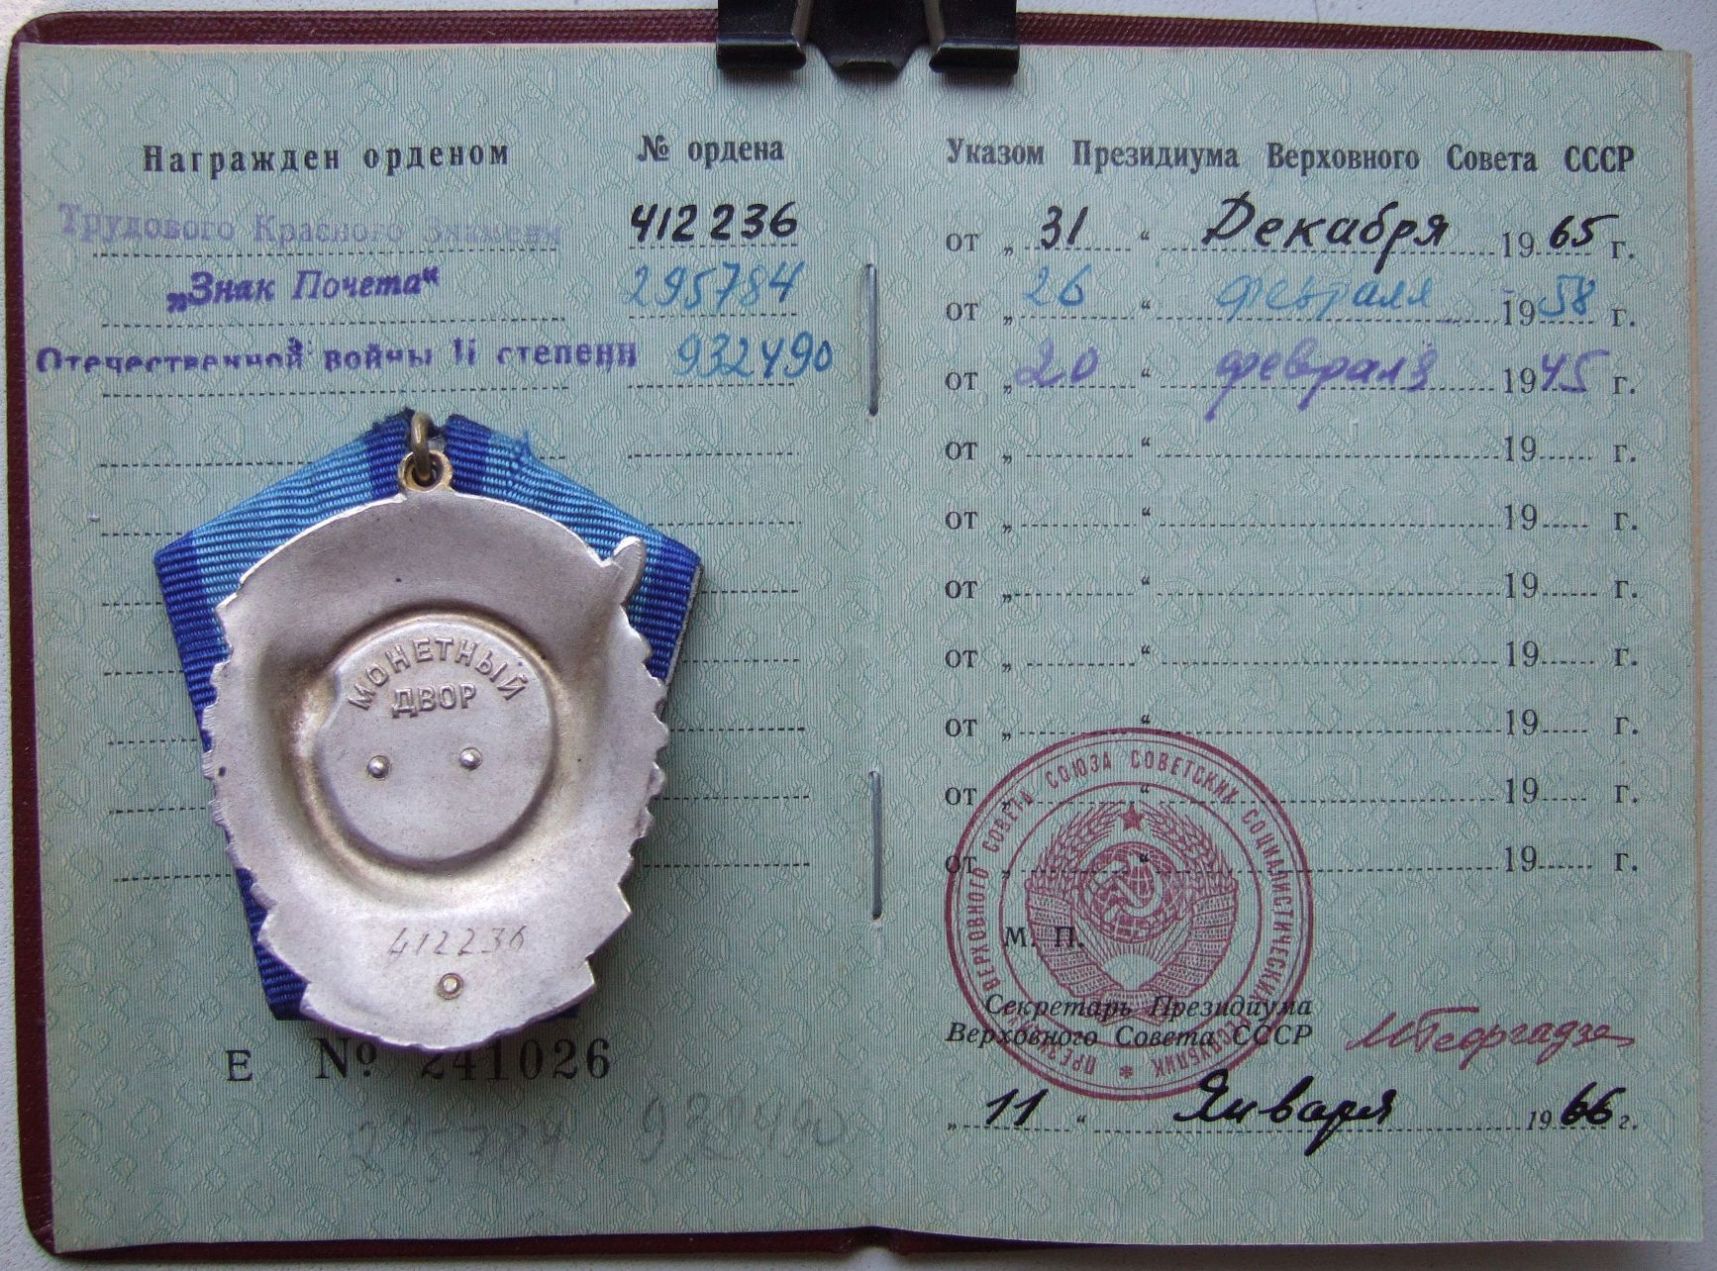 Награжден орденом № ордена Указом Президиума Верховного Совета СССР
Трудового Красного Знамени 412236 от „31“ Декабря 1965 г.
„Знак Почета“ 295784 от „26“ февраля 1958 г.
Отечественной войны II степени 932490 от „20“ февраля 1945 г.
от „ “ 19 г.
от „ “ 19 г.
от „ “ 19 г.
от „ “ 19 г.
от „ “ 19 г.
от „ “ 19 г.
от „ “ 19 г.
МОНЕТНЫЙ
ДВОР
412236
Е № 241026
932490
М. П.
ПРЕЗИДИУМ ВЕРХОВНОГО СОВЕТА СОЮЗА СОВЕТСКИХ СОЦИАЛИСТИЧЕСКИХ РЕСПУБЛИК
Секретарь Президиума
Верховного Совета СССР
М Георгадзе
„11“ Января 1966 г.